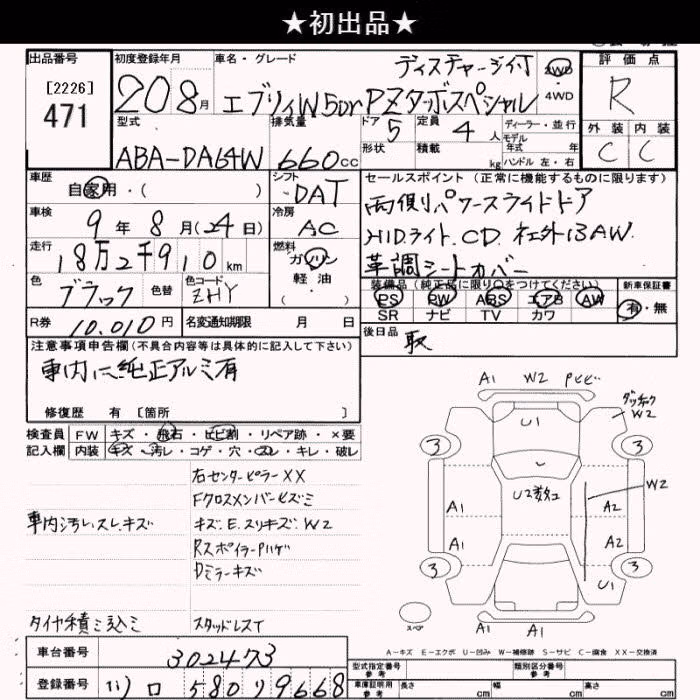 ★初出品★
出品番号
[2226]
471
初度登録年月
20 8月
車名・グレード
ディスチャージ付
エブリィW 5DR PZターボスペシャル
2WD
・4WD
評価点
R
外装 内装
C C
型式
ABA-DA64W
排気量
660cc
ドア 5
形状
定員 4人
積載 kg
ディーラー・並行
モデル
年式 年
ハンドル 左・右
車歴
自家用・( )
シフト
DAT
車検
9年8月(24日)
冷房
AC
走行
18万2千910km
燃料
ガソリン
軽油
( )
色
ブラック
色替
色コード
ZHY
R券
10,010円
名変通知期限 月 日
セールスポイント (正常に機能するものに限ります)
両側パワースライドドア
HIDライト.CD.社外13AW.
革調シートカバー
装備品(純正品に限り○をつけてください)
PS PW ABS エアB AW
SR ナビ TV カワ
新車保証書
有・無
後日品
取
注意事項申告欄(不具合内容等は具体的に記入して下さい)
車内に純正アルミ有
修復歴 有 [箇所 ]
検査員 FW キズ・飛石・ヒビ割・リペア跡・×要
記入欄 内装 キズ・汚レ・コゲ・穴・スレ・キレ・破レ
右センターピラーXX
Fクロスメンバーヒズミ
車内汚レ.スレ.キズ
キズ.E.スリキズ.W2
RスポイラーPハゲ
Dミラーキズ
タイヤ積ミ込ミ
スタッドレスT
A1 W2 Pヒビ
U1
W2
3 3
U2数コ
W2
A1 A2
A1 A2
3 3
U1
A1 A1
スペア
A-キズ E-エクボ U-凹み W-補修跡 S-サビ C-腐食 XX-交換済
車台番号
302473
登録番号
580 り 9668
型式指定番号
参考
類別区分番号
参考
車庫証明用
参考
長さ cm
幅 cm
高さ cm